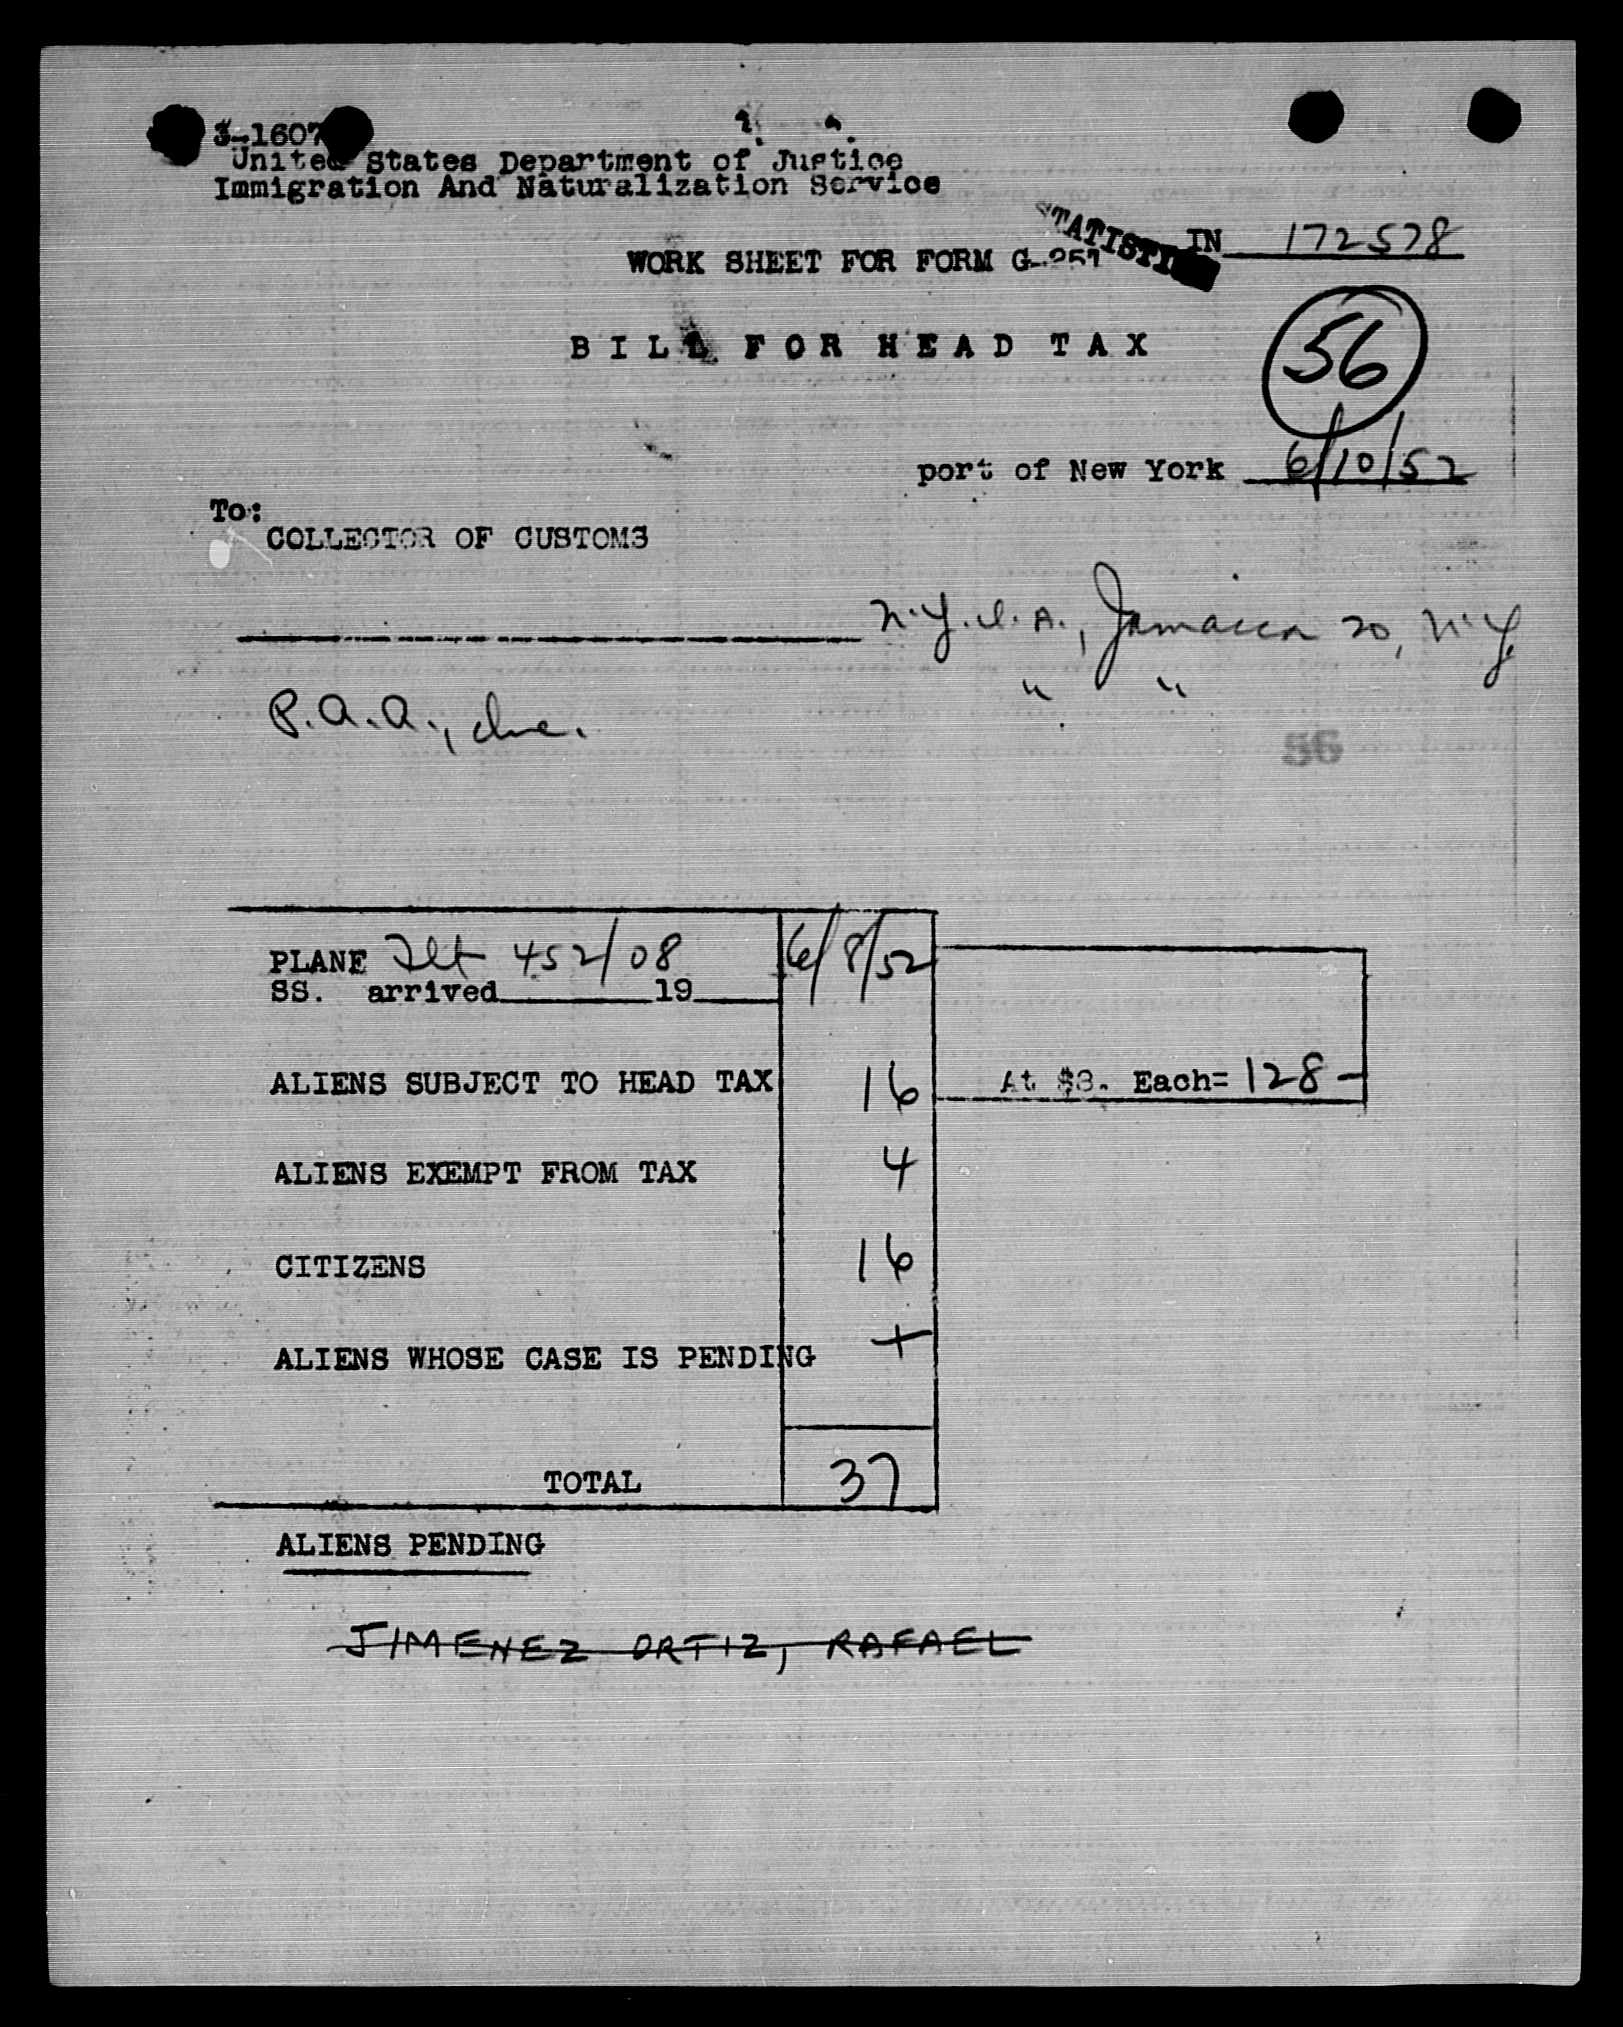 3-1607
United States Department of Justice
Immigration And Naturalization Service
IN 172578
WORK SHEET FOR FORM G-251
BILL FOR HEAD TAX
56
port of New York 6/10/52
To:
COLLECTOR OF CUSTOMS
N.Y.I.A., Jamaica 20, N.Y.
" "
P.A.A., Inc.
56
PLANE Flt 452/08 6/8/52
SS. arrived 19
ALIENS SUBJECT TO HEAD TAX 16 At $8. Each= 128-
ALIENS EXEMPT FROM TAX 4
CITIZENS 16
ALIENS WHOSE CASE IS PENDING +
TOTAL 37
ALIENS PENDING
JIMENEZ ORTIZ, RAFAEL